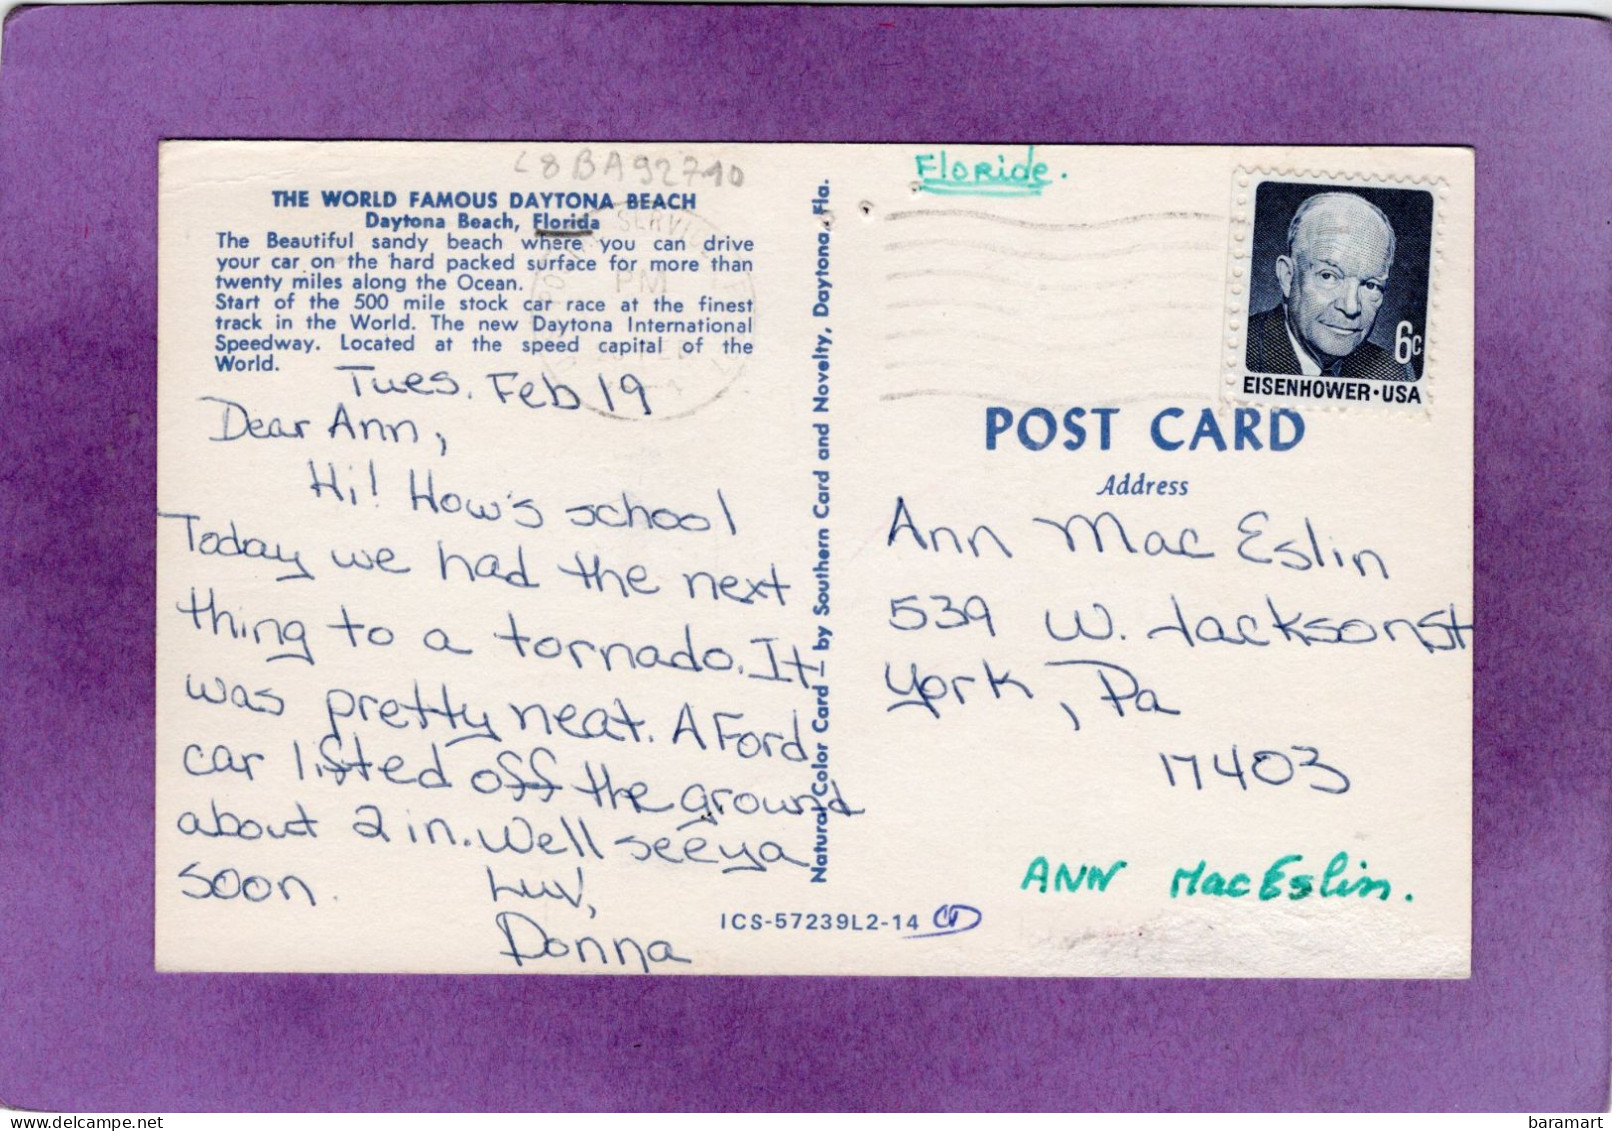 L8BA92710
THE WORLD FAMOUS DAYTONA BEACH
Daytona Beach, Florida
The Beautiful sandy beach where you can drive
your car on the hard packed surface for more than
twenty miles along the Ocean.
Start of the 500 mile stock car race at the finest
track in the World. The new Daytona International
Speedway. Located at the speed capital of the
World.
SERVICE
PM
Tues. Feb 19
Dear Ann,
Hi! How's school
Today we had the next
thing to a tornado. It
was pretty neat. A Ford
car lifted off the ground
about 2 in. Well see ya
soon.
Luv,
Donna
ICS-57239L2-14
Natural Color Card — by Southern Card and Novelty, Daytona, Fla.
Floride.
6c
EISENHOWER·USA
POST CARD
Address
Ann Mac Eslin
539 W. Jackson st
York, Pa
17403
ANN MacEslin.
baramart